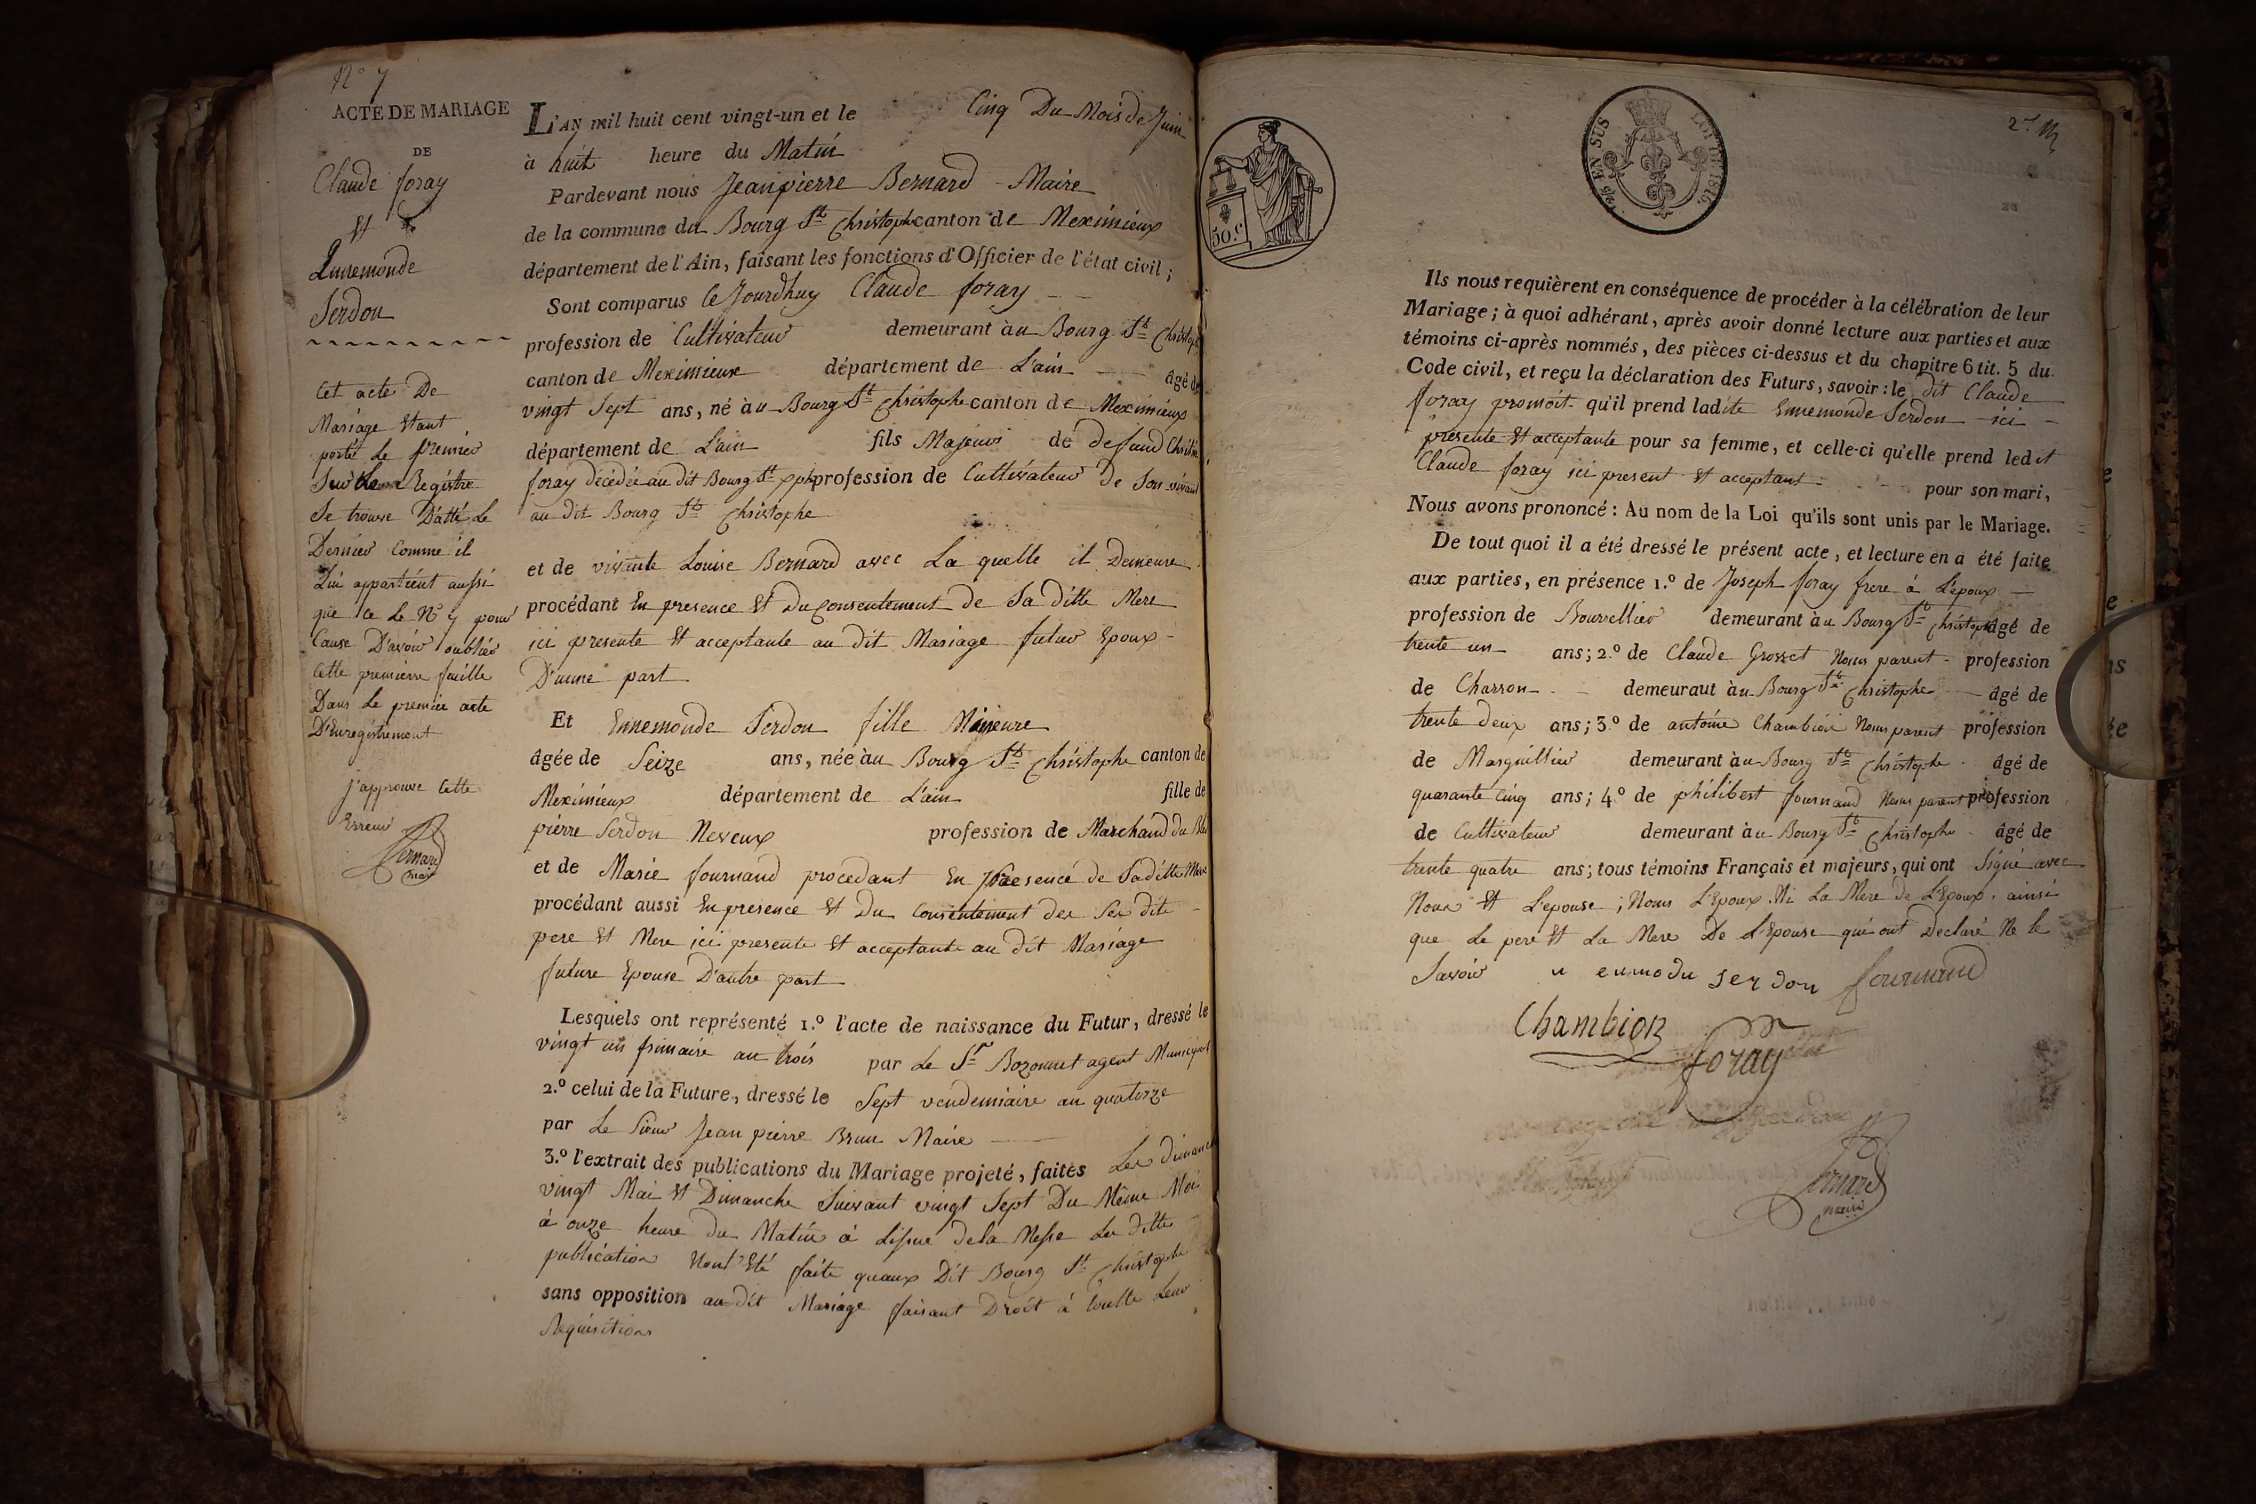 N.° 7
ACTE DE MARIAGE
DE
Claude foray
Et
Ennemonde
Serdon
Cet acte De
Mariage Etant
porté Le premier
Sur Le Registre
Se trouve Datté Le
Dernier Comme il
Lui appartient aussi
que ce Le N° 7 pour
Cause D'avoir oublier
Cette premierre feuille
Dans Le premier acte
D'Enregistrement
J'approuve Cette
Erreur
Bernard
maire
L'AN mil huit cent vingt-un et le Cinq Du Mois de Juin
à huit heure du Matin
Pardevant nous Jeanpierre Bernard - Maire
de la commune du Bourg St. Christophe canton de Meximieux
département de l'Ain, faisant les fonctions d'Officier de l'état civil ;
Sont comparus Ce Jourdhuy Claude foray
profession de Cultivateur demeurant àu Bourg St. Christophe
canton de Meximieux département de L'ain âgé de
vingt Sept ans, né àu Bourg St. Christophe canton de Meximieux
département de L'ain fils Majeur de defaud
foray décédée au dit Bourg St. Xphe profession de Cultivateur De Son vivant
au dit Bourg St. Christophe
et de vivante Louise Bernard avec La quelle il Demeure
procédant En presence Et Du Consentement de Sa ditte Mere
ici presente Et acceptante au dit Mariage futur Epoux
D'aune part
Et Ennemonde Serdon fille Mineure
âgée de Seize ans, née àu Bourg St. Christophe canton de
Meximieux département de L'ain fille de
pierre Serdon Neveux profession de Marchand du Bled
et de Marie fournand procedant En presence de Saditte Mere
procédant aussi En presence Et Du Consentement des Ses dits
pere Et Mere ici presente Et acceptante au dit Mariage
future Epouse D'autre part
Lesquels ont représenté 1.° l'acte de naissance du Futur, dressé le
vingt un frimaire an trois par Le Sr. Bozonnet agent Municipal
2.° celui de la Future, dressé le Sept vendemiaire an quatorze
par Le Sieur Jean pierre Brun Maire
3.° l'extrait des publications du Mariage projeté, faites Les Dimanche
vingt Mai Et Dimanche Suivant vingt Sept Du Même Moi
à onze heure du Matin à Lissue dela Messe Les ditte
publication Nont Eté faite quaux Dit Bourg St. Christophe
sans opposition au dit Mariage faisant Droit à toutte Leur
Requisition
50 c.
EN SUS
LOI DE 1816.
Ils nous requièrent en conséquence de procéder à la célébration de leur
Mariage ; à quoi adhérant, après avoir donné lecture aux parties et aux
témoins ci-après nommés, des pièces ci-dessus et du chapitre 6 tit. 5 du
Code civil, et reçu la déclaration des Futurs, savoir : le dit Claude
foray promoit qu'il prend ladite Ennemonde Serdon ici
présente Et acceptante pour sa femme, et celle-ci qu'elle prend ledit
Claude foray ici present Et acceptant pour son mari,
Nous avons prononcé : Au nom de la Loi qu'ils sont unis par le Mariage.
De tout quoi il a été dressé le présent acte, et lecture en a été faite
aux parties, en présence 1.° de Joseph foray frere à L'époux
profession de Bourrellier demeurant àu Bourg St. Christophe âgé de
trente un ans ; 2.° de Claude Grosset Nonn parent profession
de Charron demeuraut àu Bourg St. Christophe âgé de
trente deux ans ; 3.° de antoine Chambion Nonn parent profession
de Marguillier demeurant àu Bourg St. Christophe âgé de
quarante Cinq ans ; 4.° de philibert fournand Nonn parent profession
de Cultivateur demeurant àu Bourg St. Christophe âgé de
trente quatre ans ; tous témoins Français et majeurs, qui ont Signé avec
Nous Et L'epouse ; Nonn L'Epoux Ni La Mere de L'Epoux, ainsi
que Le pere Et La Mere De L'Epouse qui ont Declaré Ne le
Savoir
enmodu serdon fournand
Chambion
foray
Bernard
maire